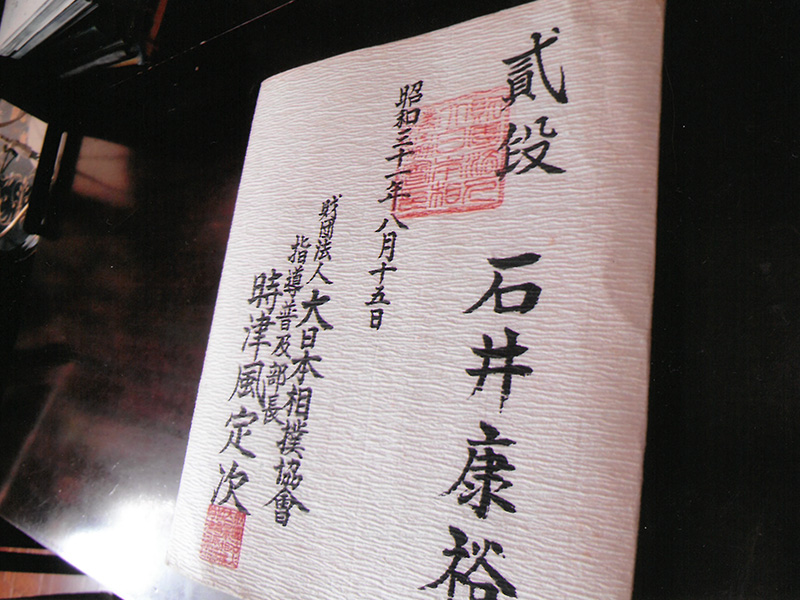 貳段
石井康裕
昭和三十一年八月十五日
財団法人大日本相撲協會
指導普及部長
時津風定次